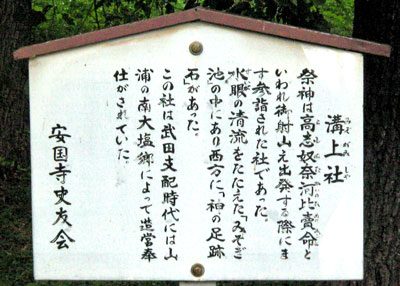 溝上社
みぞがみしゃ
祭神は高志奴奈河比賣命と
いわれ御射山え出発する際にま
ず参詣された社であった。
水眼の清流をたたえた「みそぎ
池」の中にあり西方に、「神の足跡
石」があった。
この社は武田支配時代には山
浦の南大塩郷によって造営奉
仕がされていた。
安国寺史友会